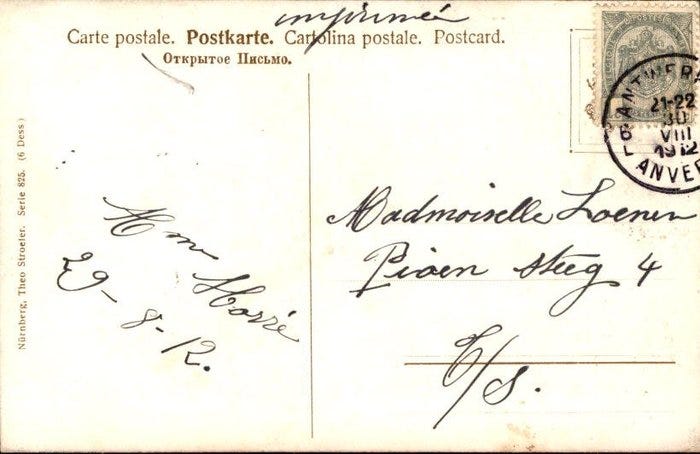 imprimé
Carte postale. Postkarte. Cartolina postale. Postcard.
Открытое Письмо.
ANTWERP
21-22
30
VIII
1912
ANVER
Nürnberg, Theo Stroefer. Serie 825. (6 Dess)
29-8-12.
Madmoiselle Loenen
steeg 4